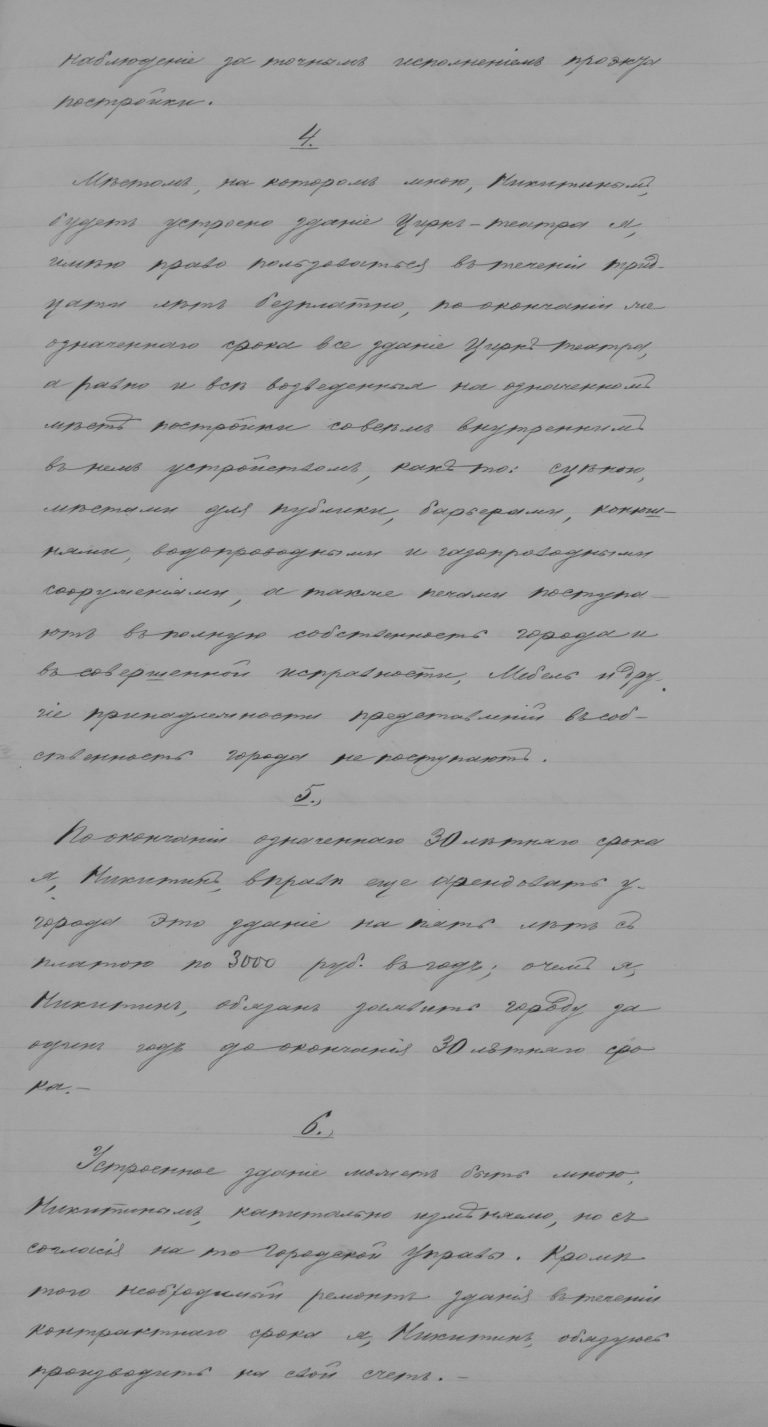 наблюденіе за точнымъ исполненіемъ проэкта
постройки.
4.
Мѣстомъ, на которомъ мною, Никитинымъ,
будетъ устроено зданіе Циркъ-театра я,
имѣю право пользоваться въ теченіи трид-
цати лѣтъ безплатно, по окончаніи же
означеннаго срока все зданіе Циркъ театра,
а равно и всѣ возведенныя на означенномъ
мѣстѣ постройки со всѣмъ внутреннимъ
въ немъ устройствомъ, какъ то: сценою,
мѣстами для публики, барьерами, конюш-
нями, водопроводными и газопроводными
сооруженіями, а также печами поступа-
ютъ въ полную собственность города и
въ совершенной исправности, Мебель и дру-
гіе принадлежности представленій въ соб-
ственность города не поступаютъ.
5.
По окончаніи означеннаго 30 лѣтняго срока
я, Никитинъ, вправѣ еще арендовать у
города это зданіе на пять лѣтъ съ
платою по 3000 руб. въ годъ; о чемъ я,
Никитинъ, обязанъ заявить городу за
одинъ годъ до окончанія 30 лѣтняго сро
ка.-
6.
Устроенное зданіе можетъ быть мною,
Никитинымъ, капитально измѣняемо, но съ
согласія на то Городской Управы. Кромѣ
того необходимый ремонтъ зданія въ теченіи
контрактнаго срока я, Никитинъ, обязуюсь
производить на свой счетъ.-